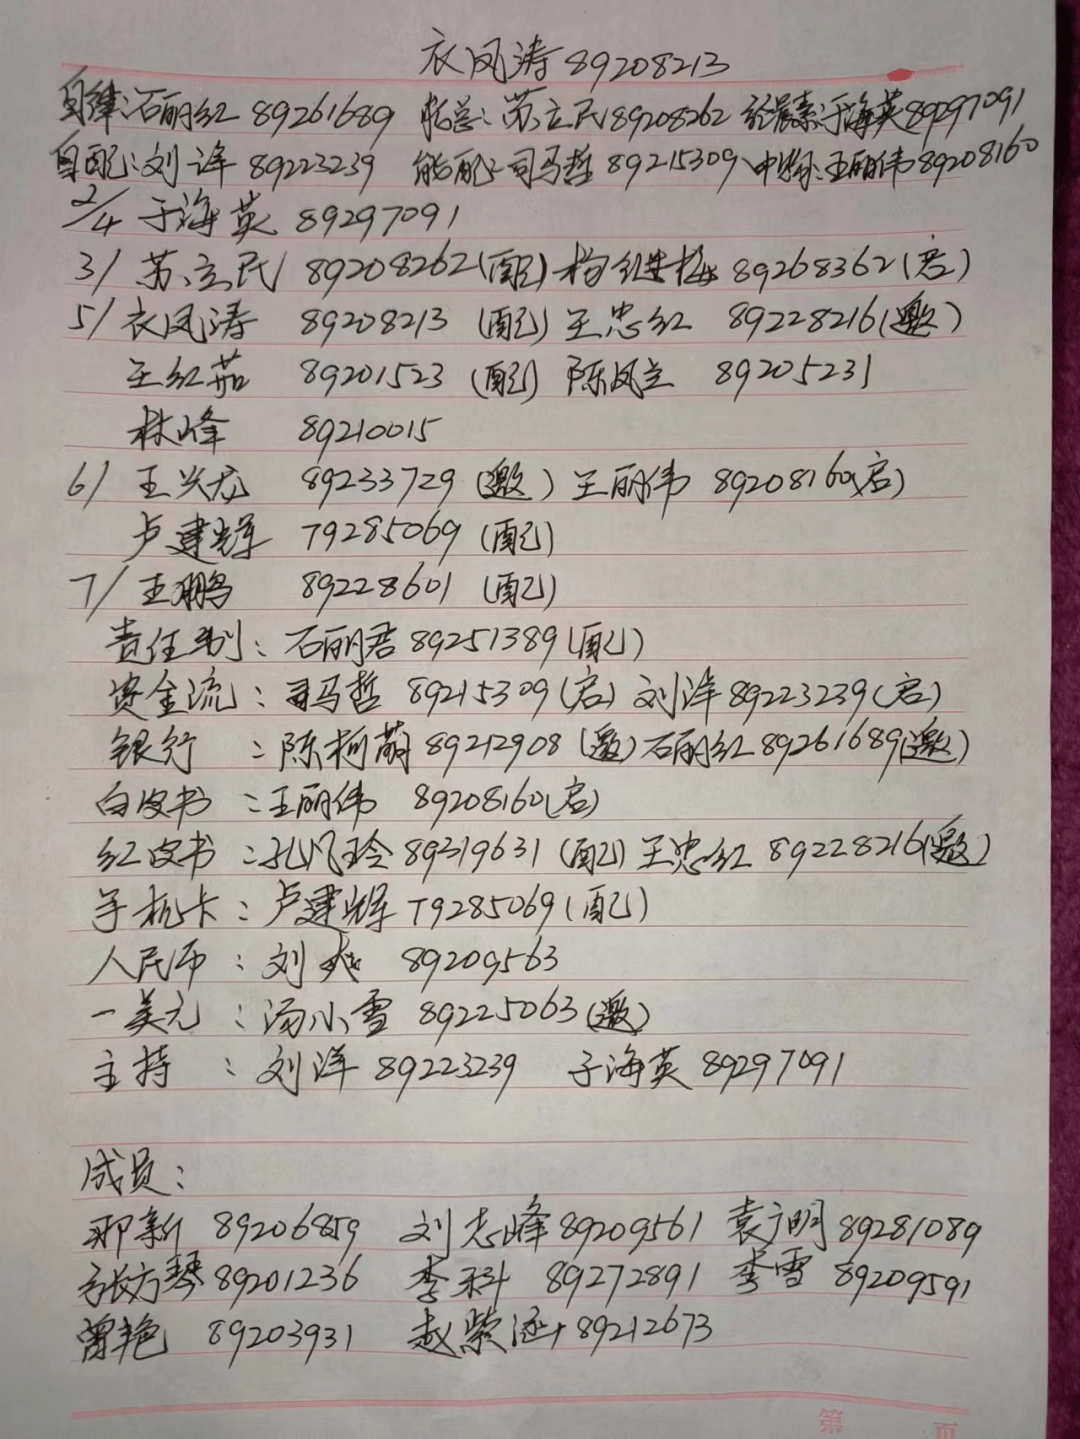 衣凤涛 89208213
自律:石丽红 89261689 托总:苏立民89208262 张晨素:于海英89297091
自配:刘洋 89223239 能配:司马哲 89215309 中标:王丽伟89208160
2/4 于海英 89297091
3/ 苏立民 89208262(配) 杨继梅 89268362(启)
5/ 衣凤涛 89208213 (配) 王忠红 89228216(邀)
王红茹 89201523 (配) 陈凤立 89205231
林峰 89210015
6/ 王兴龙 89233729 (邀) 王丽伟 89208160(启)
卢建辉 79285069 (配)
7/ 王鹏 89228601 (配)
责任制: 石丽君 89251389(配)
资金流: 司马哲 89215309(启) 刘洋 89223239(启)
银行 : 陈柯萌 89212908 (邀) 石丽红 89261689(邀)
白皮书 : 王丽伟 89208160(启)
红皮书 : 孔凤玲 89319631 (配) 王忠红 89228216(邀)
手机卡: 卢建辉 79285069(配)
人民币 : 刘爽 89209563
一美元 : 汤小雪 89225063(邀)
主持 : 刘洋 89223239 于海英 89297091
成员:
邢新 89206859 刘志峰 89209561 袁广明 89281089
张方琴 89201236 李科 89272891 李雪 89209591
曾艳 89203931 赵紫涵 89212673
第 页